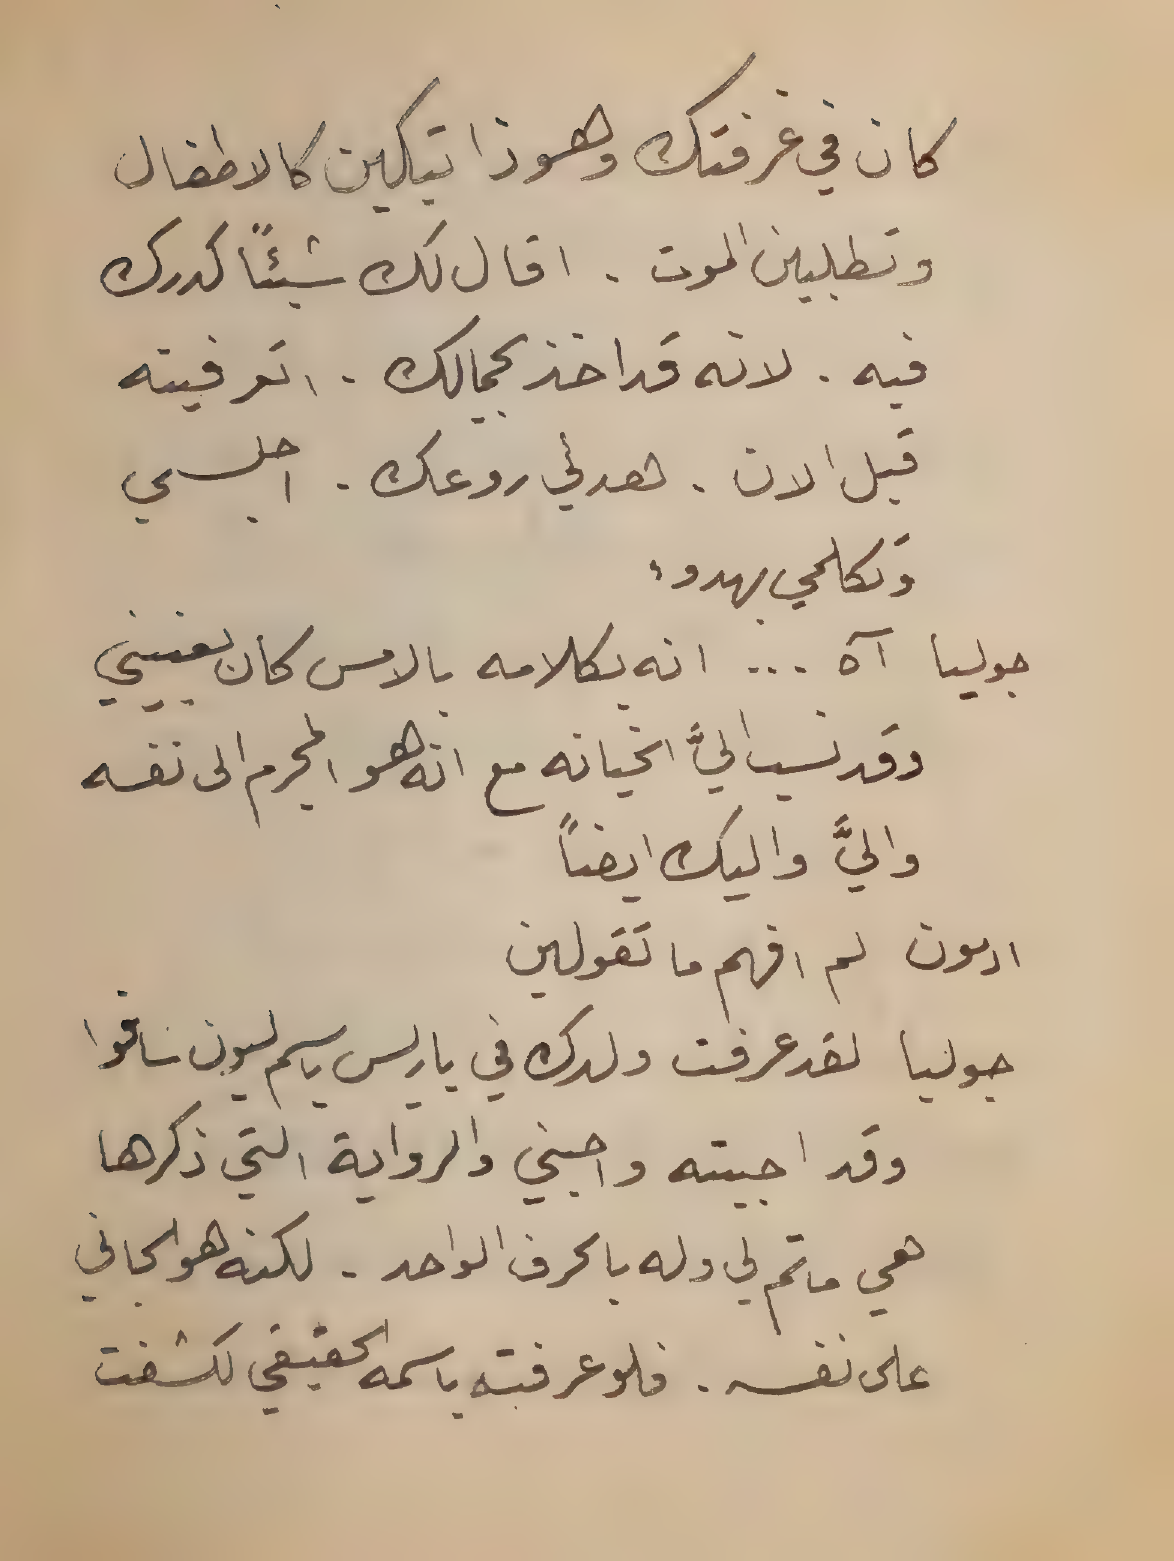 كان في غرفتك وهوذا تبكين كالاطفال
وتطلبين الموت . اقال لك شيئاً كدرك
فيه . لانه قد اخذ بجمالك . اتعرفينه
قبل الان . هدئي روعك . اجلسي
وتكلمي بهدوء
جوليا آه ... انه بكلامه بالامس كان يعنيني
وقد نسب اليَّ الخيانه مع انه هو المجرم الى نفسه
واليَّ واليك ايضاً
ادمون لم افهم ما تقولين
جوليا لقد عرفت ولدك في باريس باسم ليون سافوا
وقد احببته واحبني والرواية التي ذكرها
هي ما تم لي وله بالحرف الواحد . لكنه هو الجاني
على نفسه . فلو عرفته باسمه الحقيقي لكشفت